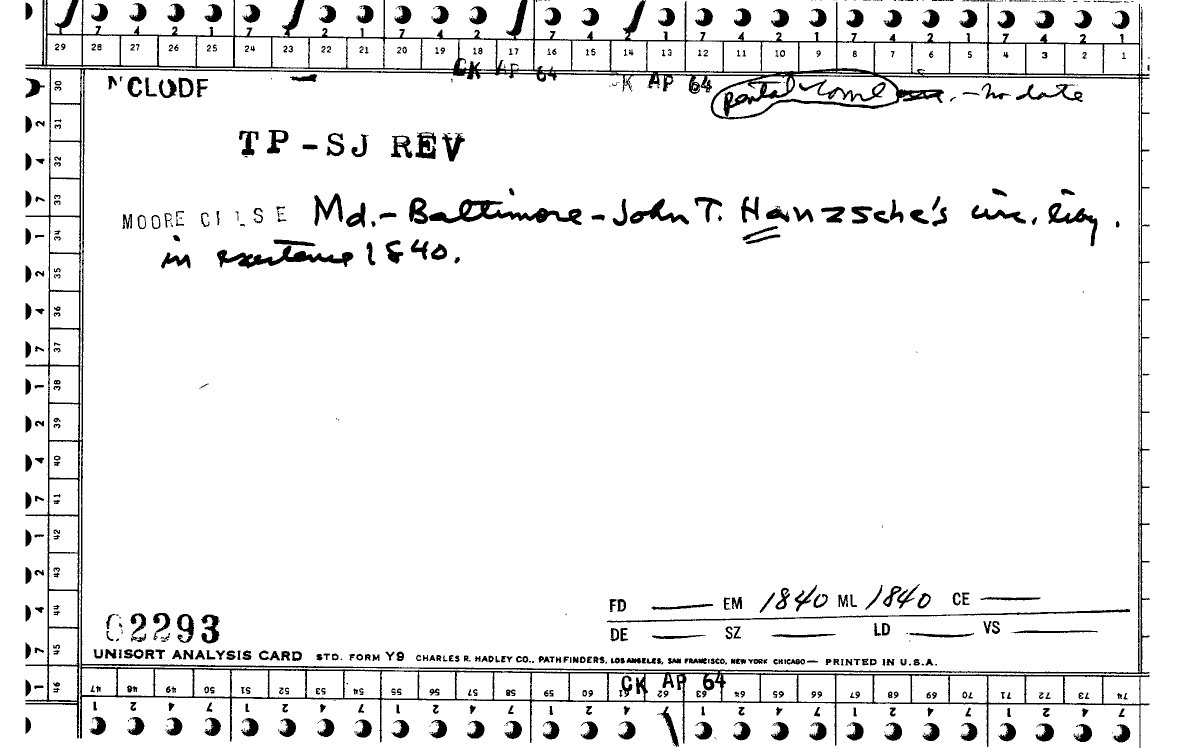 1 7 4 2 1 7 4 2 1 7 4 2 1 7 4 2 1 7 4 2 1 7 4 2 1 7 4 2 1
29 28 27 26 25 24 23 22 21 20 19 18 17 16 15 14 13 12 11 10 9 8 7 6 5 4 3 2 1
CK AP 64 CK AP 64
NCLODF rental come - no date
TP-SJ REV
MOORE Md.-Baltimore-John T. Hanzsche's circ. liby.
in existence 1840.
30
2 31
4 32
7 33
1 34
2 35
4 36
7 37
1 38
2 39
4 40
7 41
1 42
2 43
4 44
7 45
1 46
FD EM 1840 ML 1840 CE
DE SZ LD VS
02293
UNISORT ANALYSIS CARD STD. FORM Y9 CHARLES R. HADLEY CO., PATHFINDERS, LOS ANGELES, SAN FRANCISCO, NEW YORK CHICAGO— PRINTED IN U.S.A.
CK AP 64
47 48 49 50 51 52 53 54 55 56 57 58 59 60 61 62 63 64 65 66 67 68 69 70 71 72 73 74
1 2 4 7 1 2 4 7 1 2 4 7 1 2 4 7 1 2 4 7 1 2 4 7 1 2 4 7